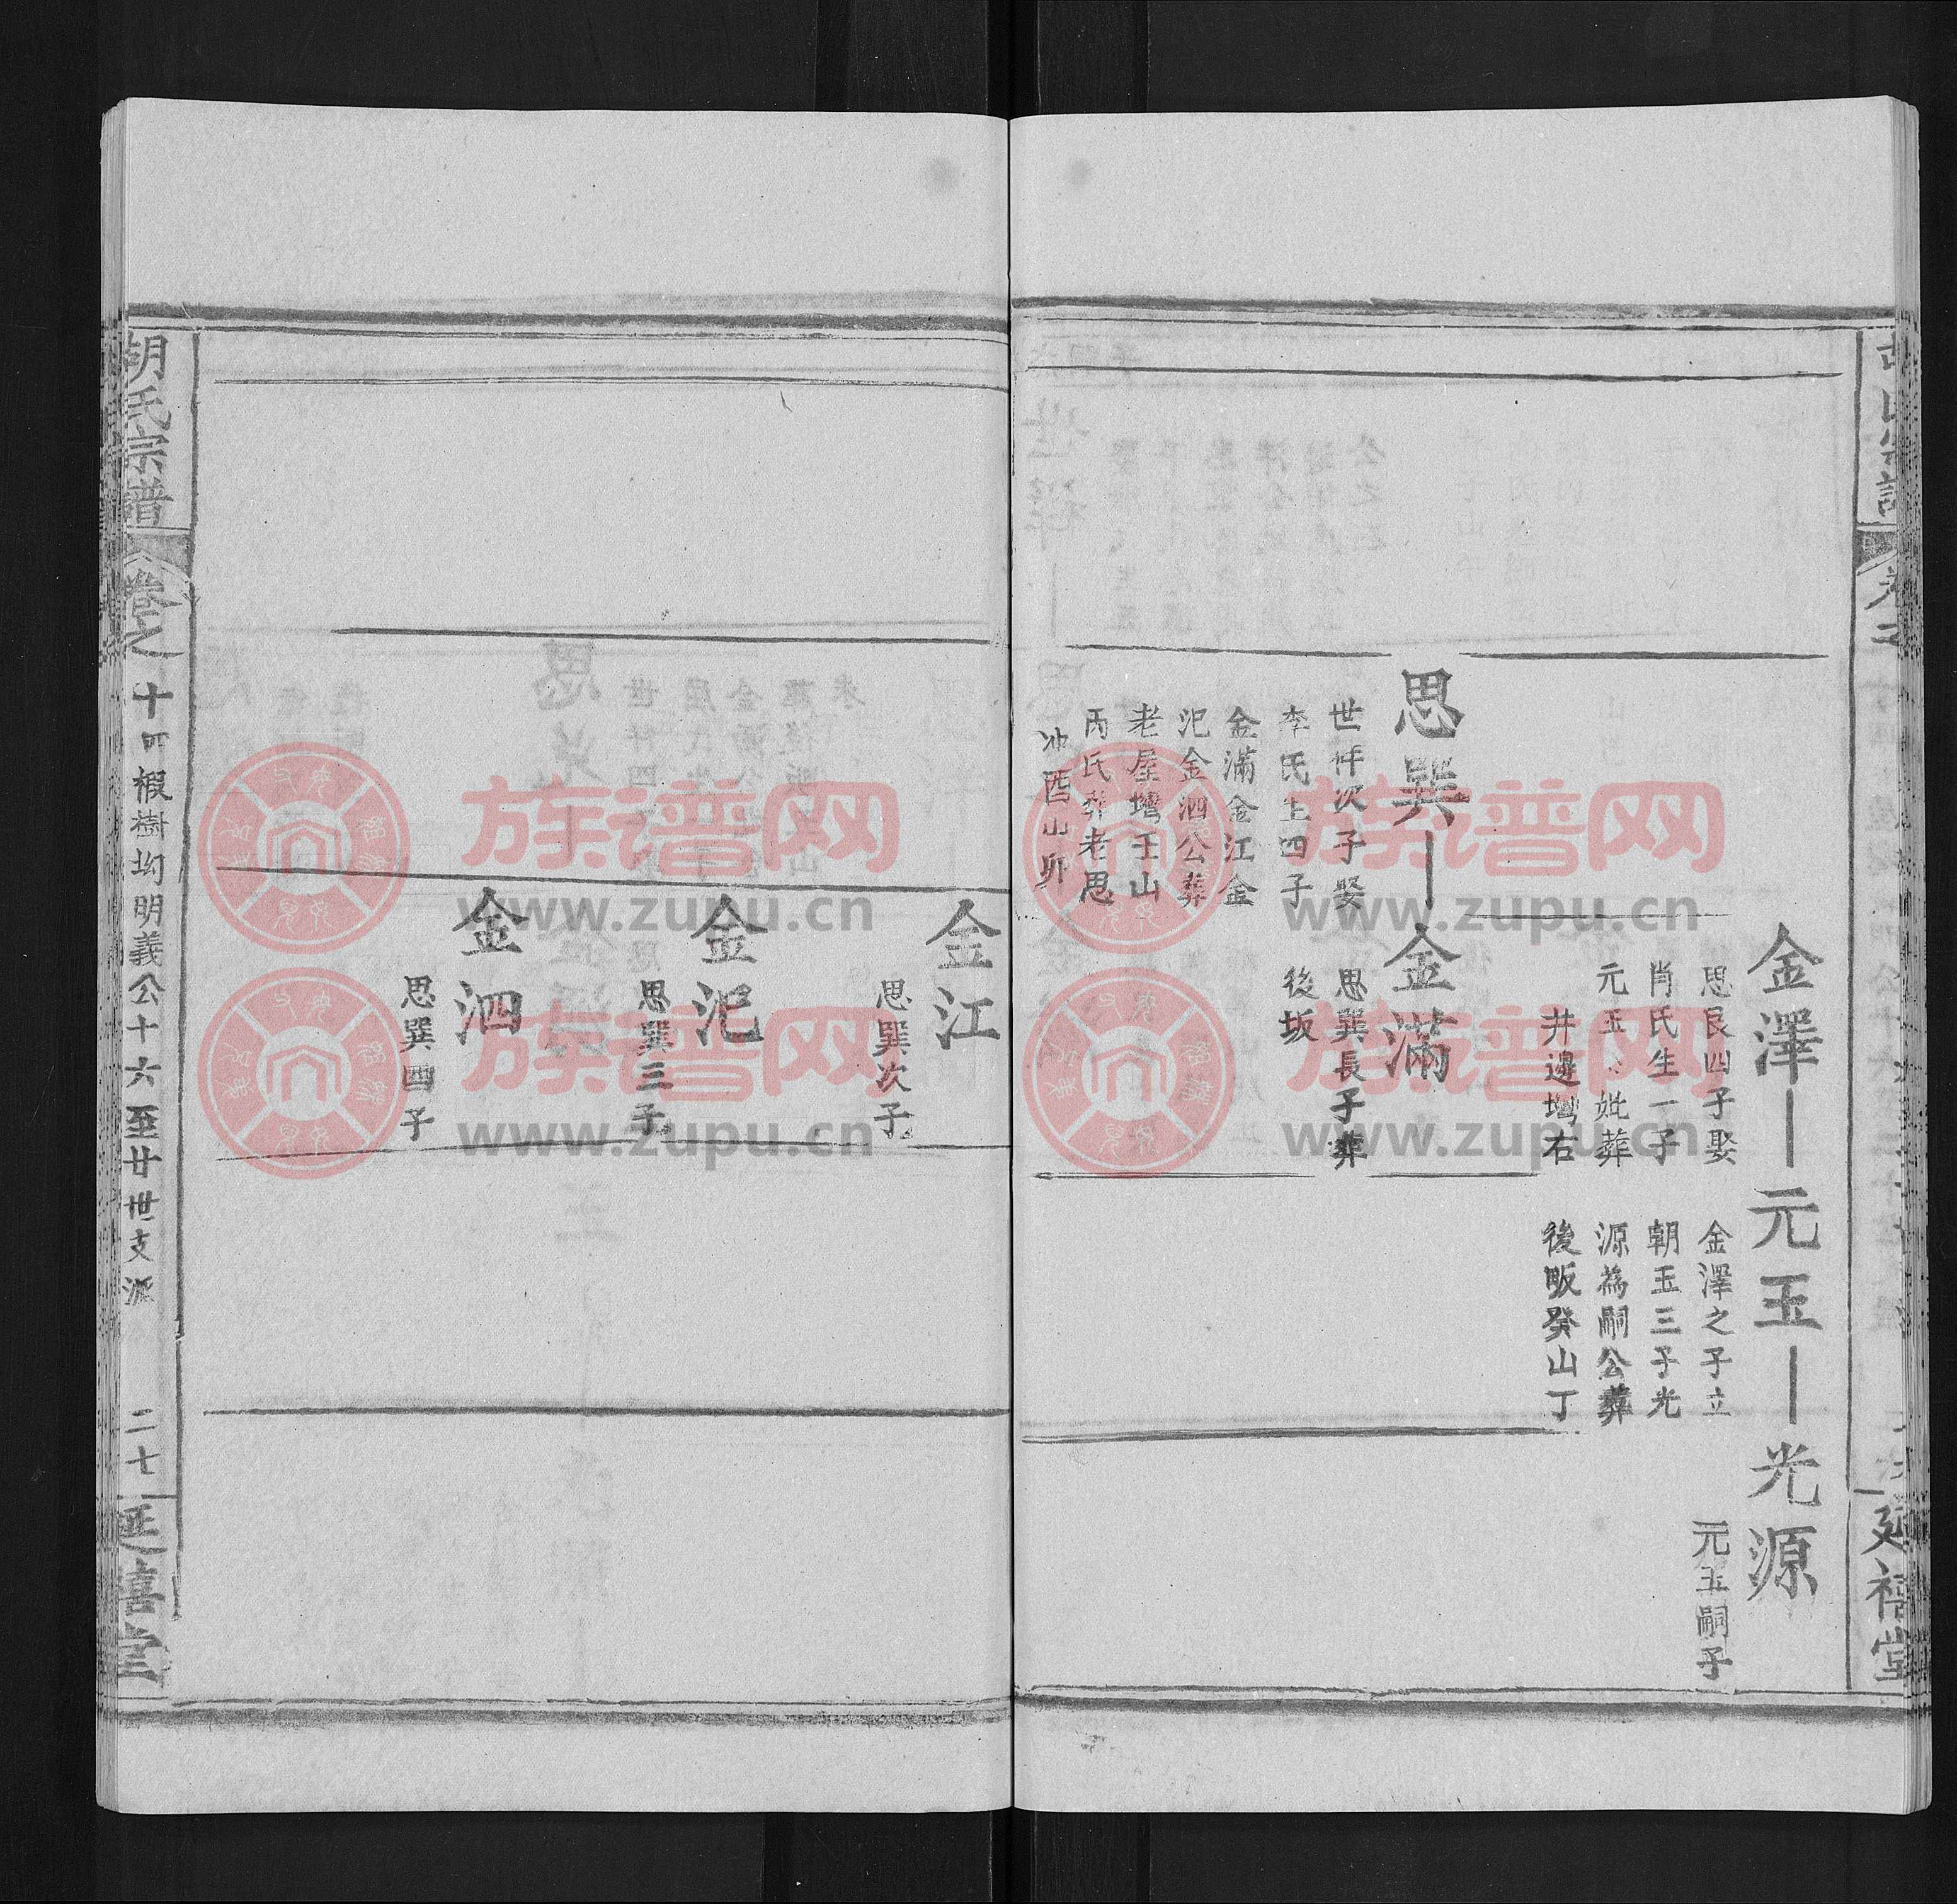 金澤｜元玉｜光源
思艮四子娶
肖氏生一子
元玉 妣葬
井邊塆右
金澤之子立
朝玉三子光
源為嗣公葬
後畈癸山丁
元玉嗣子
思巽｜金滿
世仟次子娶
李氏生四子
金滿金江金
汜金泗公葬
老屋塆壬山
丙氏葬老思
冲酉山卯
思巽長子葬
後坂
延禧堂
金江
思巽次子
金汜
思巽三子
金泗
思巽四子
胡氏宗譜
卷之十四椵樹坳明義公十六至廿世支派
二七
延禧堂
族谱网
www.zupu.cn
族谱网
www.zupu.cn
族谱网
www.zupu.cn
族谱网
www.zupu.cn